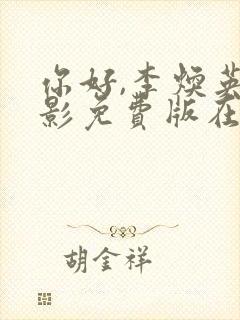 你好,李焕英
影免费版在
胡金祥